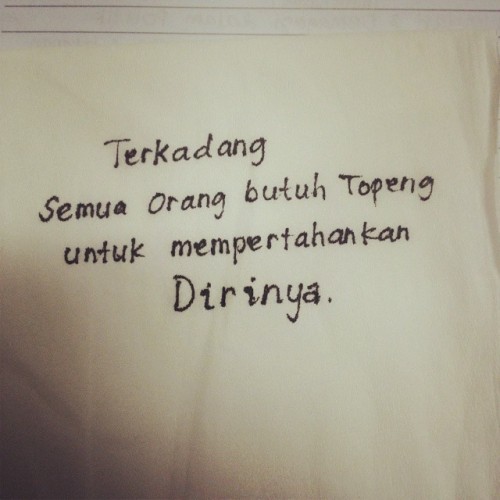 Terkadang
Semua Orang butuh Topeng
untuk mempertahankan
Dirinya.